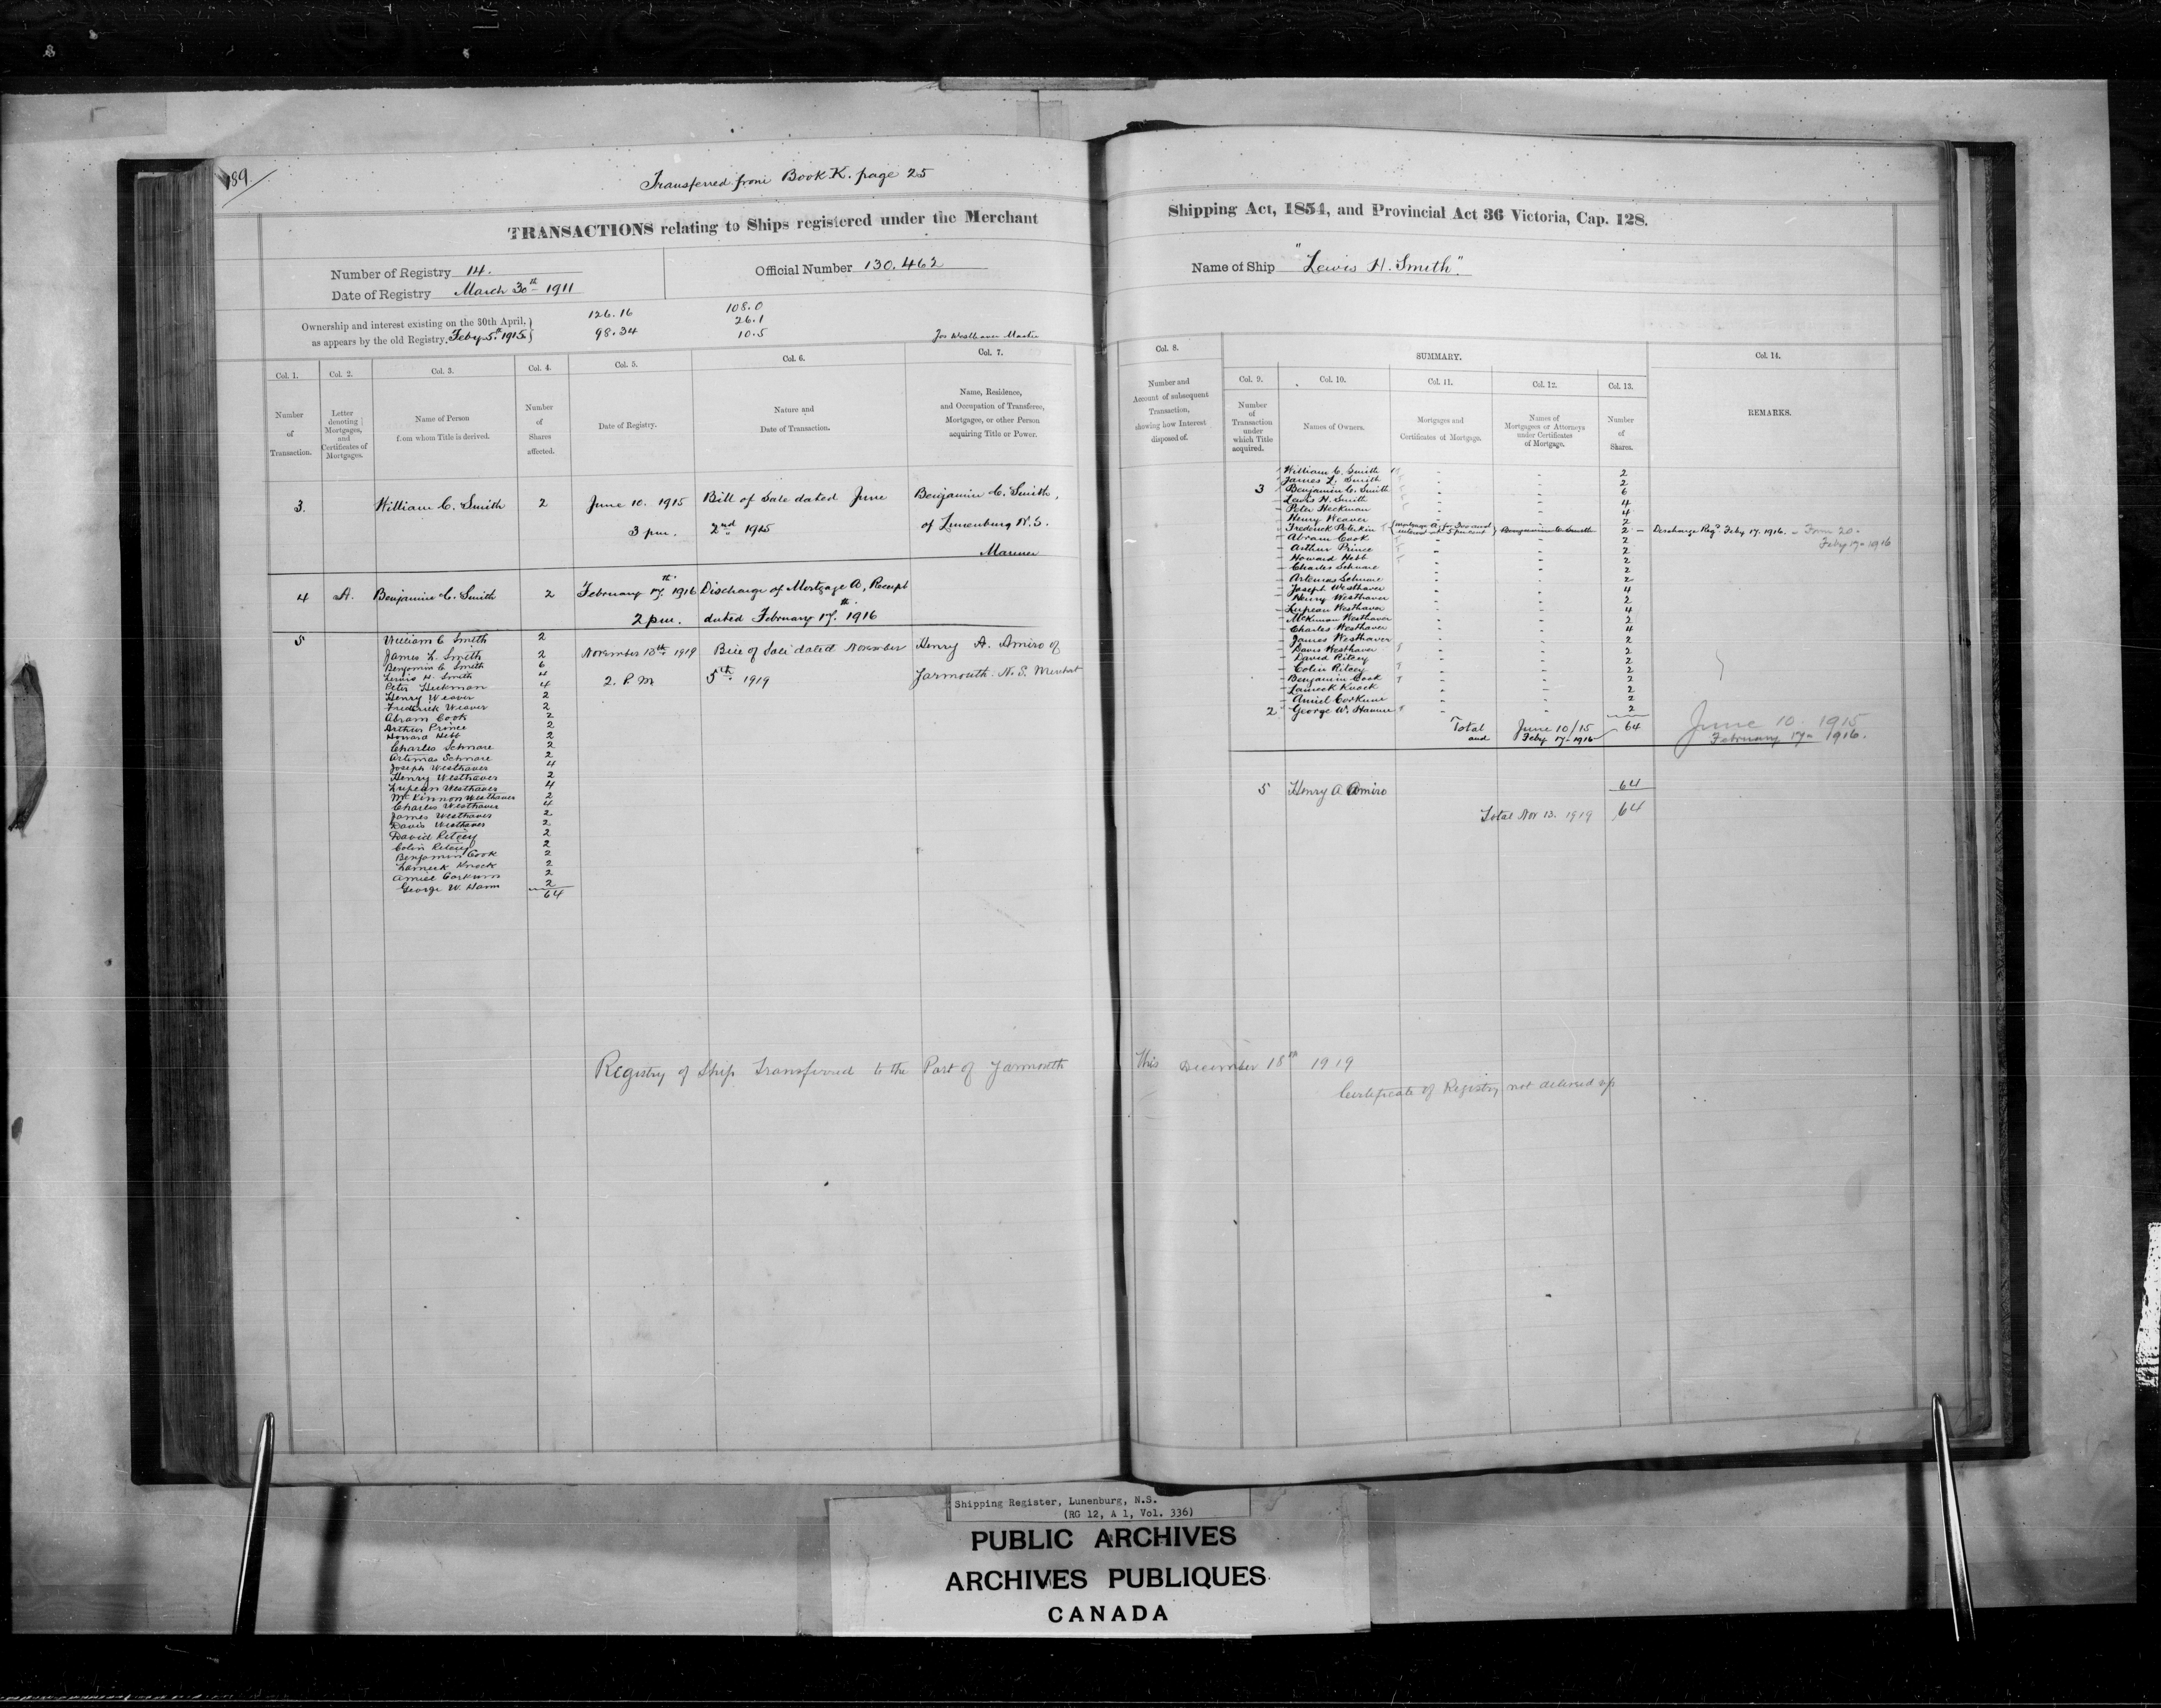 189
Transferred from Book K. page 25
TRANSACTIONS relating to Ships registered under the Merchant
Number of Registry 14.
Date of Registry March 30th 1911
Official Number 130.462
Ownership and interest existing on the 30th April,
as appears by the old Registry. Feby 5th 1915
126.16
98.34
108.0
26.1
10.5
Jos Westhaver Master
Col. 1.
Number
of
Transaction.
Col. 2.
Letter
denoting
Mortgages,
and
Certificates of
Mortgages.
Col. 3.
Name of Person
from whom Title is derived.
Col. 4.
Number
of
Shares
affected.
Col. 5.
Date of Registry.
Col. 6.
Nature and
Date of Transaction.
Col. 7.
Name, Residence,
and Occupation of Transferee,
Mortgagee, or other Person
acquiring Title or Power.
3. William C. Smith 2 June 10. 1915 Bill of Sale dated June Benjamin C. Smith,
3 pm. 2nd 1915 of Lunenburg N.S.
Mariner
4 A. Benjamin C. Smith 2 February 17th 1916 Discharge of Mortgage A, Receipt
2 pm. dated February 17th 1916
5 William C Smith 2
James L. Smith 2
Benjamin C Smith 6
Lewis H. Smith 4
Peter Heckman 4
Henry Weaver 2
Frederick Weaver 2
Abram Cook 2
Arthur Prince 2
Howard Hebb 2
Charles Schnare 2
Artimas Schnare 2
Joseph Westhaver 4
Henry Westhaver 2
Lupean Westhaver 4
McKinnon Westhaver 2
Charles Westhaver 4
James Westhaver 2
Davis Westhaver 2
David Ritcey 2
Colin Ritcey 2
Benjamin Cook 2
Lameck Knock 2
Amiel Corkum 2
George W. Hamm 2
64
November 13th 1919 Bill of Sale dated November Henry A. Amiro of
2. P.M 5th 1919 Yarmouth. N.S. Merchant
Registry of Ship Transferred to the Port of Yarmouth
Shipping Act, 1854, and Provincial Act 36 Victoria, Cap. 128.
Name of Ship "Lewis H. Smith".
Col. 8.
Number and
Account of subsequent
Transaction,
showing how Interest
disposed of.
SUMMARY.
Col. 9.
Number
of
Transaction
under
which Title
acquired.
Col. 10.
Names of Owners.
Col. 11.
Mortgages and
Certificates of Mortgage.
Col. 12.
Names of
Mortgagees or Attorneys
under Certificates
of Mortgage.
Col. 13.
Number
of
Shares.
Col. 14.
REMARKS.
William C. Smith " - 2
James L. Smith " - 2
3 Benjamin C. Smith " - 6
Lewis H. Smith " - 4
Peter Heckman " - 4
Henry Weaver " - 2
Frederick Pelekin Mortgage A, for 300 and interest at 5 per cent Benjamin C. Smith 2 - Discharge Regd Feby 17. 1916. - Form 20.
Feby 17- 1916
Abram Cook " - 2
Arthur Prince " - 2
Howard Hebb " - 2
Charles Schnare " - 2
Artemas Schnare " - 2
Joseph Westhaver " - 4
Henry Westhaver " - 2
Lupean Westhaver " - 4
McKinnon Westhaver " - 2
Charles Westhaver " - 4
James Westhaver " - 2
Davis Westhaver " - 2
David Ritcey " - 2
Colin Ritcey " - 2
Benjamin Cook " - 2
Lameck Knock " - 2
Amiel Corkum " - 2
2 George W. Hamm " - 2
Total June 10/15 64
and Feby 17-1916
June 10. 1915
February 17- 1916.
5 Henry A Amiro 64
Total Nov 13. 1919 64
This December 18th 1919
Certificate of Registry not delivered up
Shipping Register, Lunenburg, N.S.
(RG 12, A 1, Vol. 336)
PUBLIC ARCHIVES
ARCHIVES PUBLIQUES
CANADA